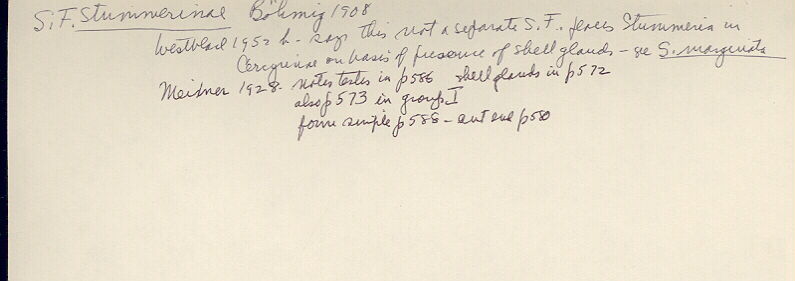 S.F. Stummerinae Böhmig 1908
Westblad 1952 b - says this not a separate S.F. places Stummeria in
Cercyrinae on basis of presence of shell glands - see S. marginata
Meixner 1928 - notes testes in p 586 shell glands in p 572
also p 573 in group I
form simple p 588 - p 580